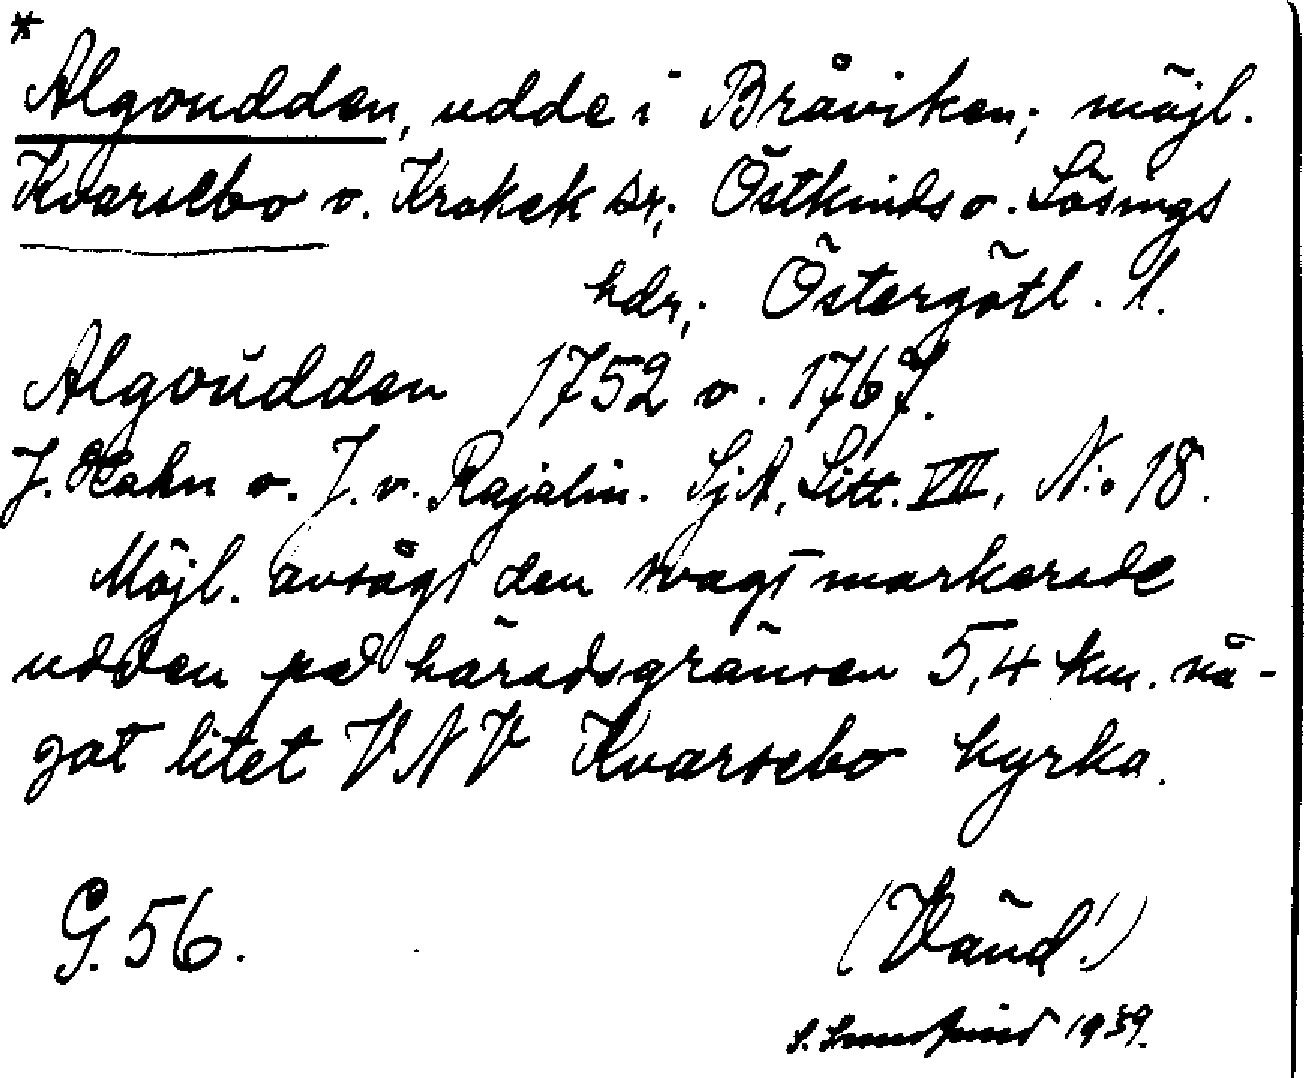 *
Algoudden, udde i Bråviken; möjl.
Kvarsebo o. Krokek sr; Östkinds o. Lösings
hdr; Östergötl. l.
Algoŭdden 1752 o. 1767.
J. Hahn o. J. v. Rajalin. SjA, Litt. VIII, N:o 18.
Möjl. avsågs den svagt markerade
udden på häradsgränsen 5,4 km. nå-
got litet VNV Kvarsebo kyrka.
G. 56.
(Vänd!)
1939.